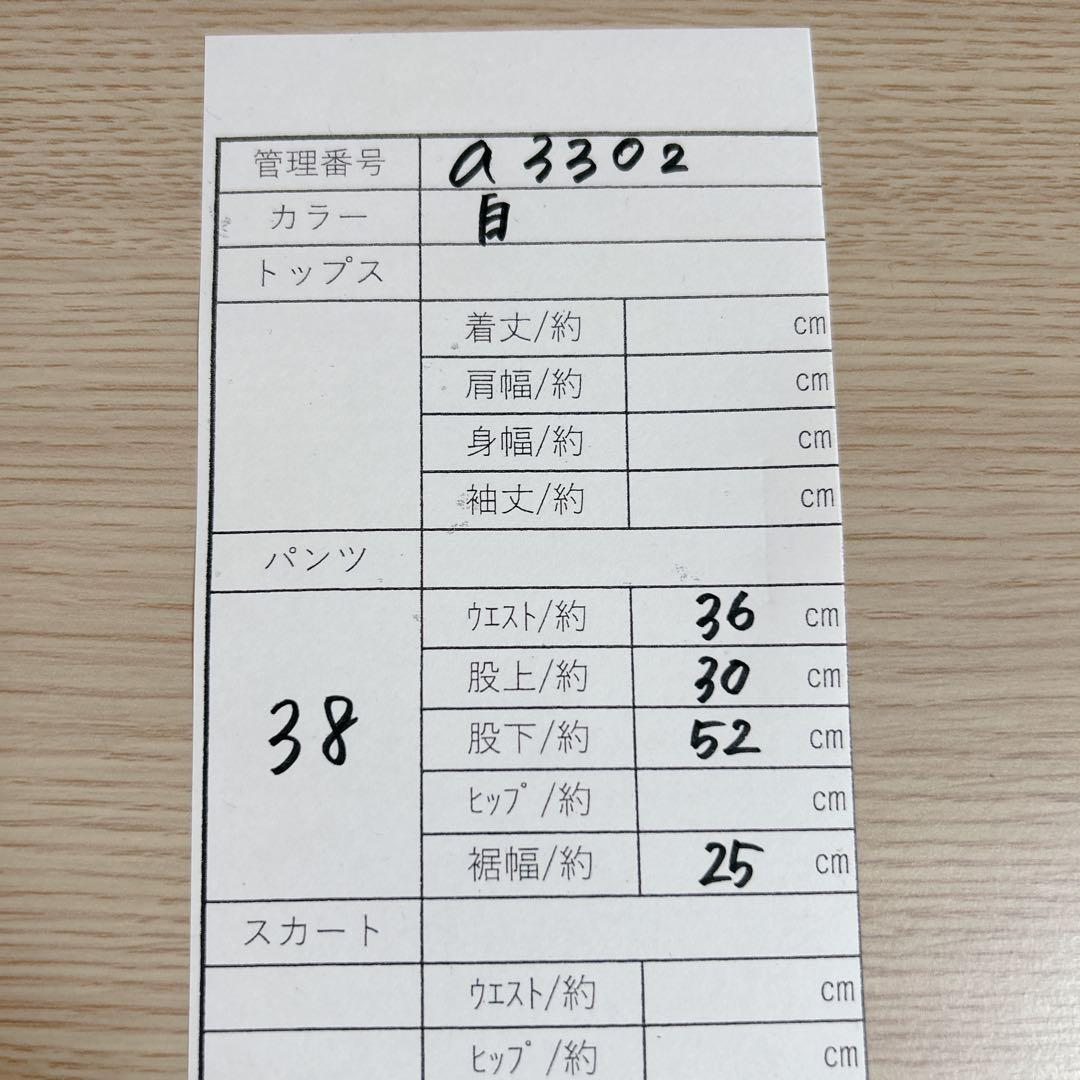 管理番号 a3302
カラー 白
トップス
着丈/約 cm
肩幅/約 cm
身幅/約 cm
袖丈/約 cm
パンツ
38
ｳｴｽﾄ/約 36 cm
股上/約 30 cm
股下/約 52 cm
ﾋｯﾌﾟ/約 cm
裾幅/約 25 cm
スカート
ｳｴｽﾄ/約 cm
ﾋｯﾌﾟ/約 cm